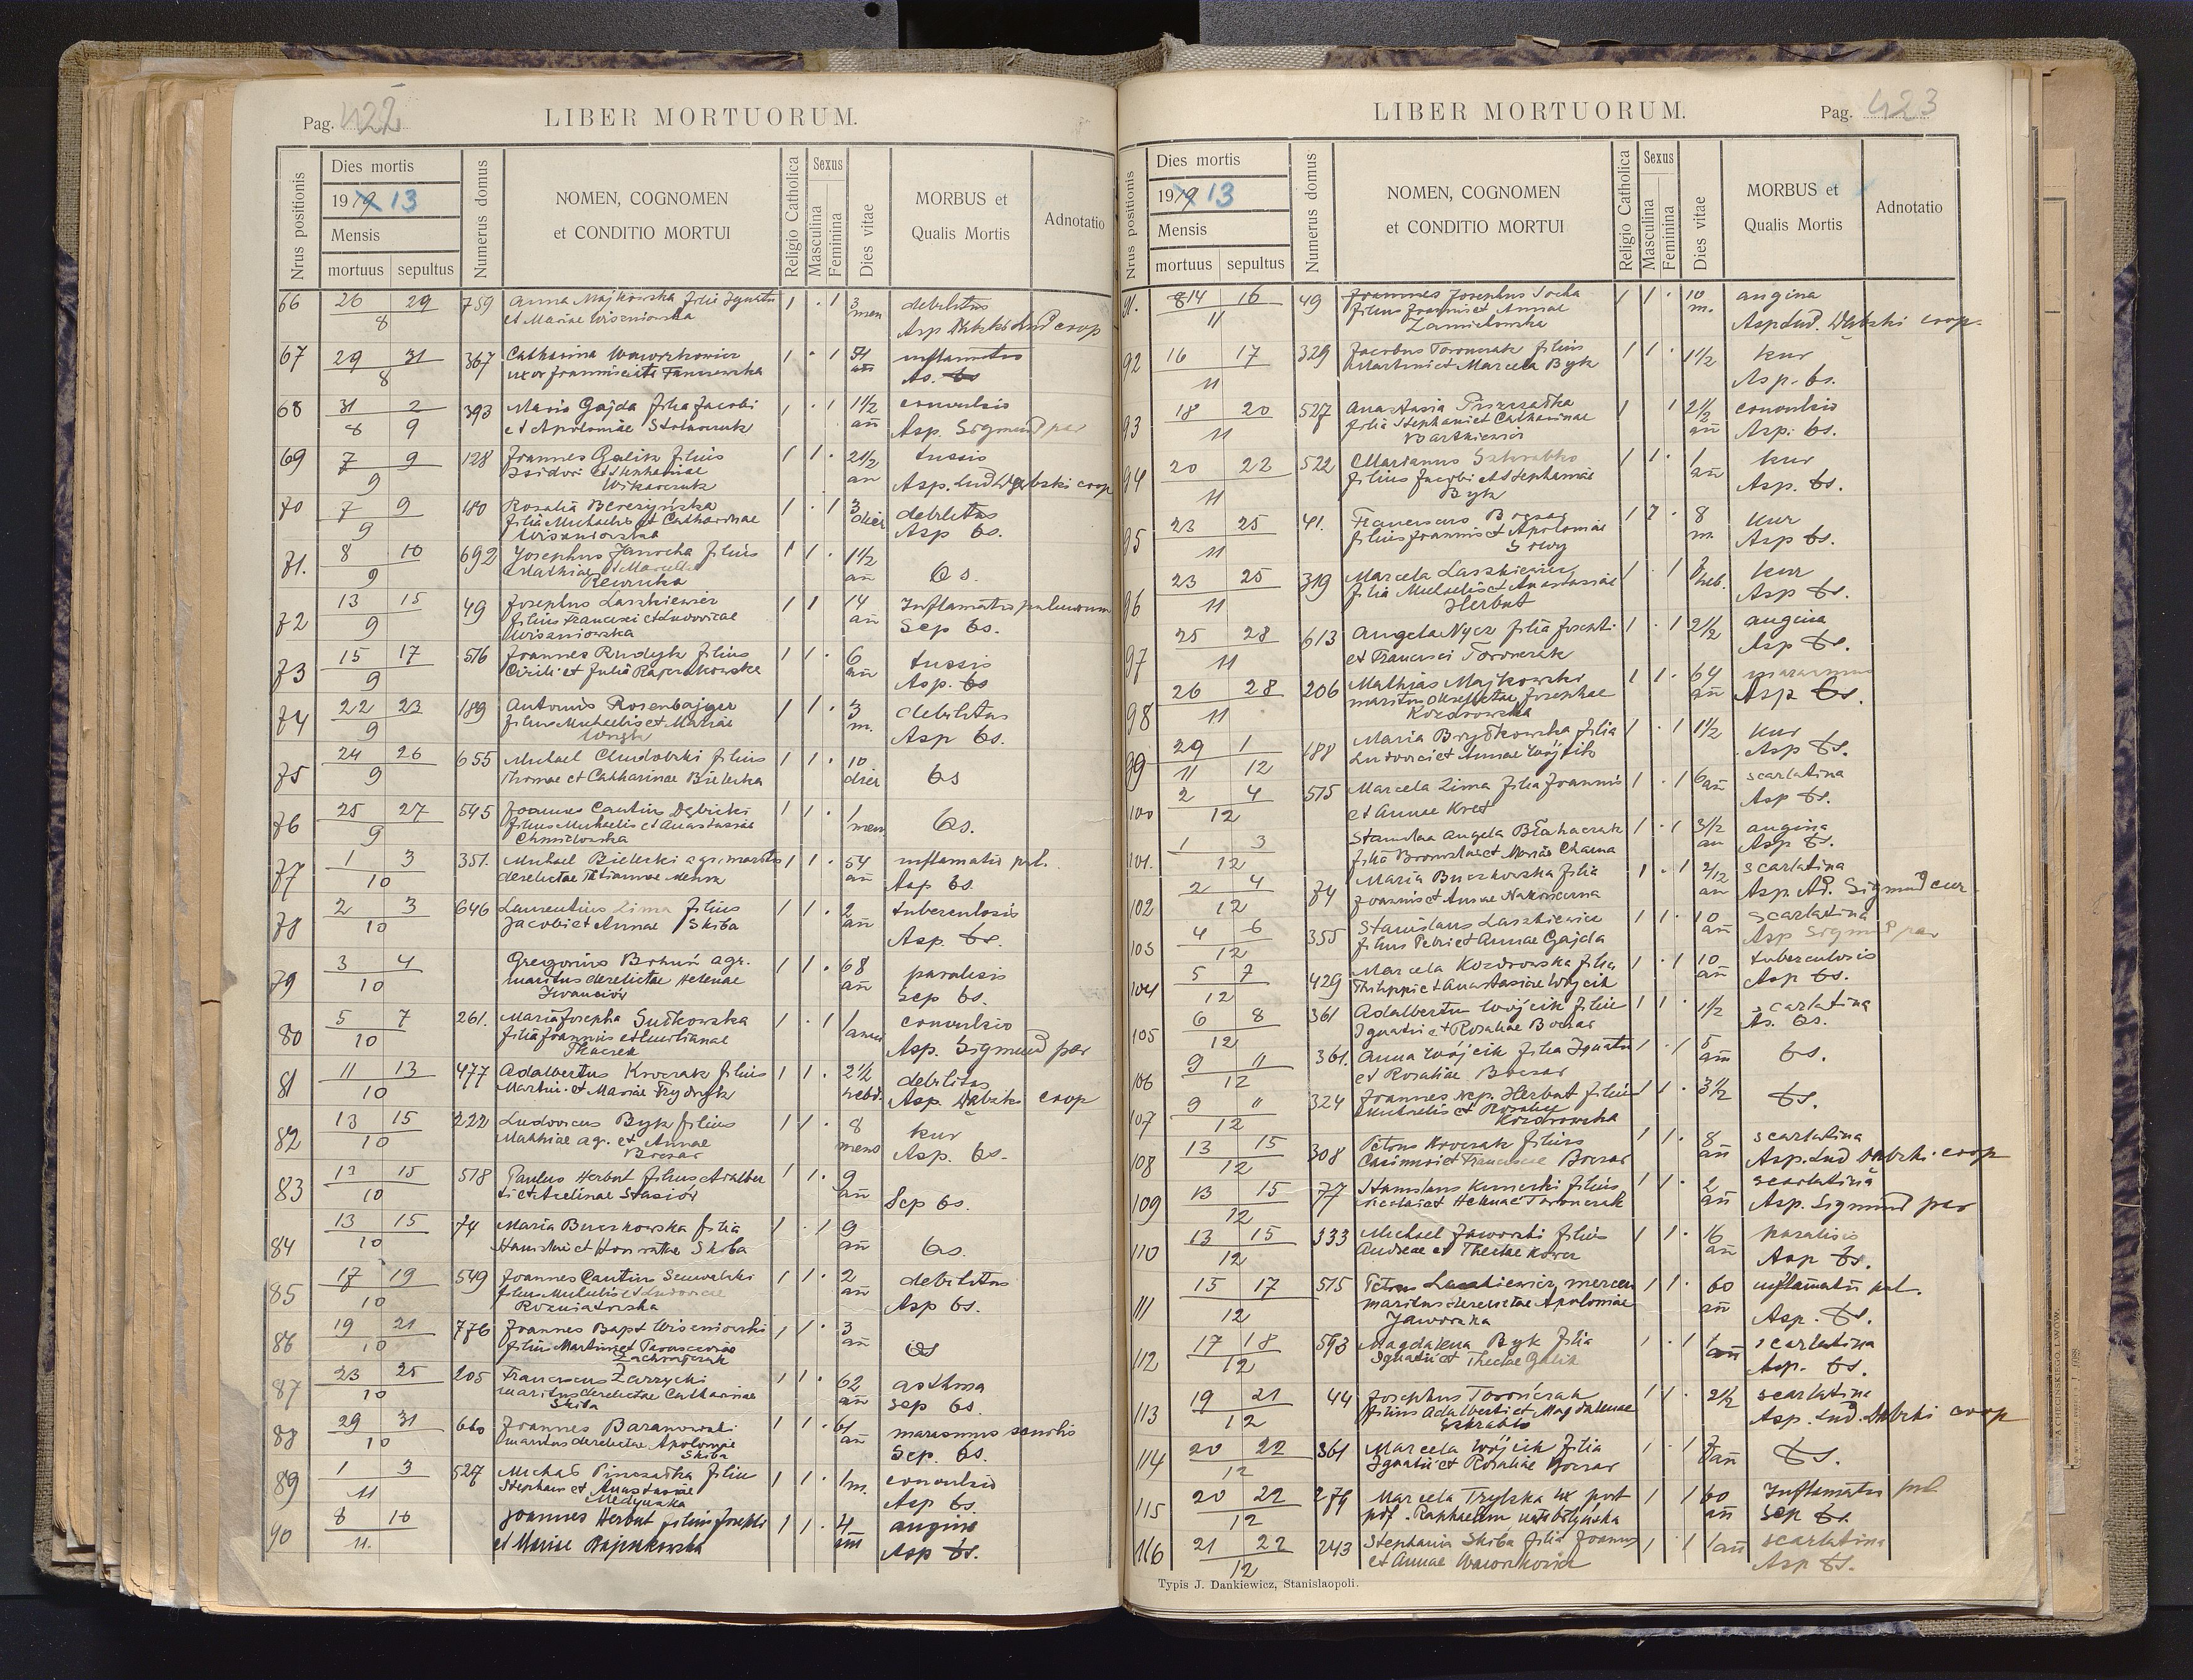 Pag. 422
LIBER MORTUORUM.
Nrus positionis
Dies mortis
1919 13
Mensis
mortuus sepultus
Numerus domus
NOMEN, COGNOMEN
et CONDITIO MORTUI
Religio Catholica
Sexus
Masculina
Feminina
Dies vitae
MORBUS et
Qualis Mortis
Adnotatio
66 26 29 759 Anna Majkowska filia Ignatii 1 . 1 3 debilitas
8 et Mariae Wiszniowska men Asp Dąbzki Lud coop
67 29 31 367 Catharina Wawrzkowicz 1 . 1 54
8 uxor Joannis an
68 31 2 393 Maria Gajda filia Jacobi 1 . 1 1 1/2 convulsio
8 9 et Apoloniae an Asp. Sigmund par
69 7 9 128 Joannes Galik filius 1 1 . 2 1/2 tussis
9 Isidori et Stephaniae an Asp. Lud Dąbski coop
70 7 9 180 Rosalia Berezyńska 1 . 1 3 debilitas
9 filia Michaelis et Catharinae dier Asp bs.
Wiszniowska
71. 8 10 692 Josephus Janocha filius 1 1 . 1 1/2
9 Mathiae et Marcella an bs.
72 13 15 49 Josephus Laszkiewicz 1 1 14 Inflamatio pulmonum
9 filius Francisci et Ludovicae an Sep bs.
Wiszniowska
73 15 17 516 Joannes Rudyk filius 1 1 . 6 tussis
9 Cirili et Julia Rajczakowska an Asp. bs
74 22 23 189 Antonius Rosenbajger 1 1 . 3 debilitas
9 filius Michaelis et Mariae m. Asp bs.
75 24 26 655 Michael Chudobski filius 1 1 . 10
9 Thomae et Catharinae Bielecka dier bs
76 25 27 545 Joannes Cantius Dębicki 1 1 . 1
9 filius Michaelis et Anastasiae men bs.
Chmielowska
77 1 3 351. Michael Bielecki agr. maritus 1 1 . 54 inflamatio pul.
10 derelictae an Asp bs.
78 2 3 646 Laurentius Zima filius 1 1 . 2 tuberculosis
10 Jacobi et Annae Skiba an Asp. bs.
79 3 4 Gregorius Bohun agr. 1 1 . 68 paralisis
10 maritus derelictae Helenae an Sep bs.
Iwanciów
80 5 7 261. Maria Josepha Sutkowska 1 . 1 1 convulsio
10 filia Joannis et Asp. Sigmund par
Tkaczek
81 11 13 477 Adalbertus Kroczak filius 1 1 . 2 1/2 debilitas
10 Martini et Mariae Frydryk hebd. Asp. Dąbzki coop
82 13 15 222 Ludovicus Byk filius 1 1 . 8 kur
10 Mathiae ag. et Annae mens Asp. bs.
Boczar
83 13 15 518 Paulus Herbut filius Adalber 1 1 . 9
10 ti et Avelinae Stasiów an Sep bs.
84 13 15 74 Maria Buczkowska filia 1 . 1 9
10 Stanislai et Honoratae Skiba an bs.
85 17 19 549 Joannes Cantius 1 1 . 2 debilitas
10 filius Michaelis et Ludovicae an Asp bs.
Rozniatowska
86 19 21 776 Joannes Bapt Wiszniowski 1 1 . 3
10 filius Martini et an bs
87 23 25 205 Franciscus Zarzycki 1 1 . 62 asthma
10 maritus derelictae Catharinae an Sep bs.
Skiba
88 29 31 660 Joannes Baranowski 1 1 . 61 marasmus senilis
10 maritus derelictae Apoloniae an Sep. bs.
Skiba
89 1 3 527 Michał Pinczatka filius 1 1 . 1m. convulsio
11 Stephani et Anastasiae Asp bs.
Medyńska
90 8 10 Joannes Herbut filius Josephi 1 1 . 4 angina
11. et Mariae Rajczakowska an Asp bs.
LIBER MORTUORUM.
Pag. 423
Nrus positionis
Dies mortis
1919 13
Mensis
mortuus sepultus
Numerus domus
NOMEN, COGNOMEN
et CONDITIO MORTUI
Religio Catholica
Sexus
Masculina
Feminina
Dies vitae
MORBUS et
Qualis Mortis
Adnotatio
91. 14 16 49 Joannes Josephus Socha 1 1 . 10 angina
11 filius Joannis et Annae m. Asp Lud. Dąbzki coop.
92 16 17 329 Jacobus Torończak filius 1 1 . 1 1/2 kur
11 Martini et Marcela Byk Asp. bs.
93 18 20 527 Anastasia Pinczatka 1 1 2 1/2 convulsio
11 filia Stephani et Catharinae an Asp. bs.
Bartkiewicz
94 20 22 522 Marianus Szkrabko 1 1 . 1 kur
11 filius Jacobi et Stephaniae an Asp. bs.
Byk
95 23 25 41. Franciscus Boczar 1 1 . 8 kur
11 filius Joannis et Apoloniae m. Asp bs.
Sowy
96 23 25 319 Marcela Laszkiewicz 1 . 1 kur
11 filia Michaelis et Anastasiae Asp bs.
Herbut
97 25 28 613 Angela Nycz filia Josephi 1 . 1 2 1/2 angina
11 et Francisci Torończak Asp bs.
98 26 28 206 Mathias Majkowski 1 1 . 64 marasmus
11 maritus derelictae Josephae an Asp bs.
Kozdrowska
99 29 1 188 Maria Brydkowska filia 1 . 1 1 1/2 kur
11 12 Ludovici et Annae Wójcik Asp bs.
100 2 4 515 Marcela Zima filia Joannis 1 . 1 6an scarlatina
12 et Annae Kret Asp bs.
101. 1 3 Stanislaa Angela Błahaczak 1 . 1 3 1/2 angina
12 filia Bronislai et Mariae Charna an Asp bs.
102 2 4 74 Maria Buczkowska filia 1 . 1 2/12 scarlatina
12 Joannis et Annae Nakonieczna an Asp. Ad. Sigmund cur.
103 4 6 355 Stanislaus Laszkiewicz 1 1 . 10 scarlatina
12 filius Petri et Annae Gajda an Asp Sigmund par
104 5 7 429 Marcela Kozdrowska filia 1 . 1 10 tuberculosis
12 Philippi et Anastasiae Wójcik an Asp bs.
105 6 8 361 Adalbertus Wójcik filius 1 1 . 1 1/2 scarlatina
12 Ignatii et Rosaliae Boczar As. bs.
106 9 11 361. Anna Wójcik filia Ignatii 1 . 1 5
12 et Rosaliae Boczar an bs.
107 9 11 324 Joannes Nep. Herbut filius 1 1 . 3 1/2
12 Michaelis et Rosaliae bs.
Kozdrowska
108 13 15 308 Petrus Kroczak filius 1 1 . 8 scarlatina
12 Casimiri et Franciscae Boczar an Asp. Lud Dąbzki coop
109 13 15 77 Stanislaus Kunicki filius 1 1 . 2 scarlatina
12 Nicolai et Helenae Torończak an Asp. Sigmund par
110 13 15 333 Michael Jaworski filius 1 1 . 16 paralisis
12 Andreae et Theclae an Asp bs.
111 15 17 515 Petrus Laszkiewicz mercen 1 1 . 60 inflamatio pul.
12 maritus derelictae Apoloniae an Asp. bs.
Jaworska
112 17 18 593 Magdalena Byk filia 1 . 1 1 scarlatina
12 Ignatii et Theclae Galik an Asp. bs.
113 19 21 44 Josephus Torończak 1 1 . 2 1/2 scarlatina
12 filius Adalberti et Magdalenae Asp. Lud. Dąbzki coop
Szkrabko
114 20 22 361 Marcela Wójcik filia 1 . 1
12 Ignatii et Rosaliae Boczar bs.
115 20 22 279 Marcela Trylska ux post 1 1 60 Inflamatio pul
12 pdf. Raphaelem an Sep bs.
116 21 22 243 Stephania Skiba filia Joannis 1 . 1 1an scarlatina
12 et Annae Wawrzkowicz Asp bs.
Typis J. Dankiewicz, Stanislaopoli.